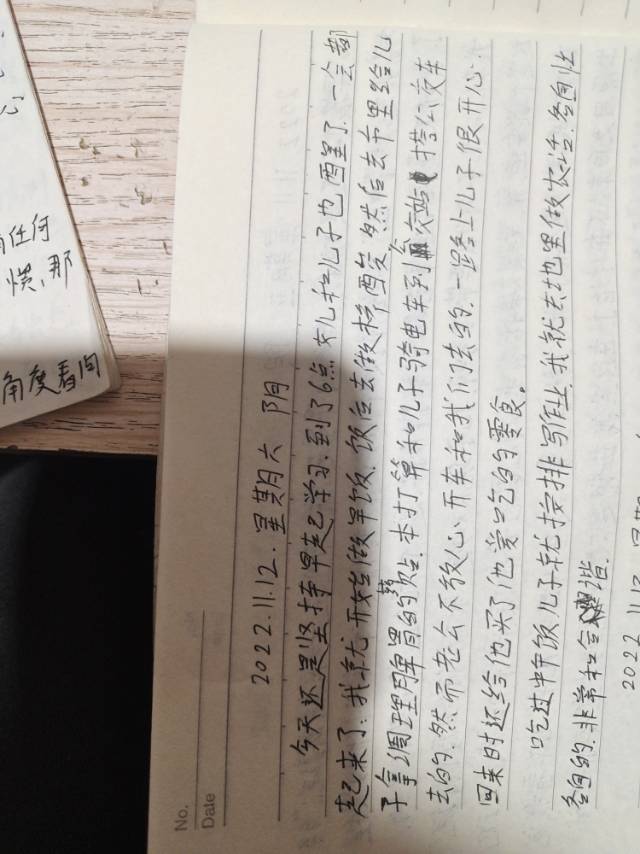 任何
惯、那
角度看问
No.
Date
2022.11.12.星期六 阴
今天还是坚持早起学习.到了6点女儿和儿子也醒了.一会都
起来了.我就开始做早饭.饭后去做核酸.然后去市里给儿
子拿调理脾胃的药贴.本打算和儿子骑电车到公交站搭公交车
去的.然而老公不放心.开车和我们去的.一路上儿子很开心.
回来时还给他买了他爱吃的零食。
吃过中午饭儿子就按排写作业.我就去地里做农活.各自忙
各自的.非常和谐.
2022.11.13